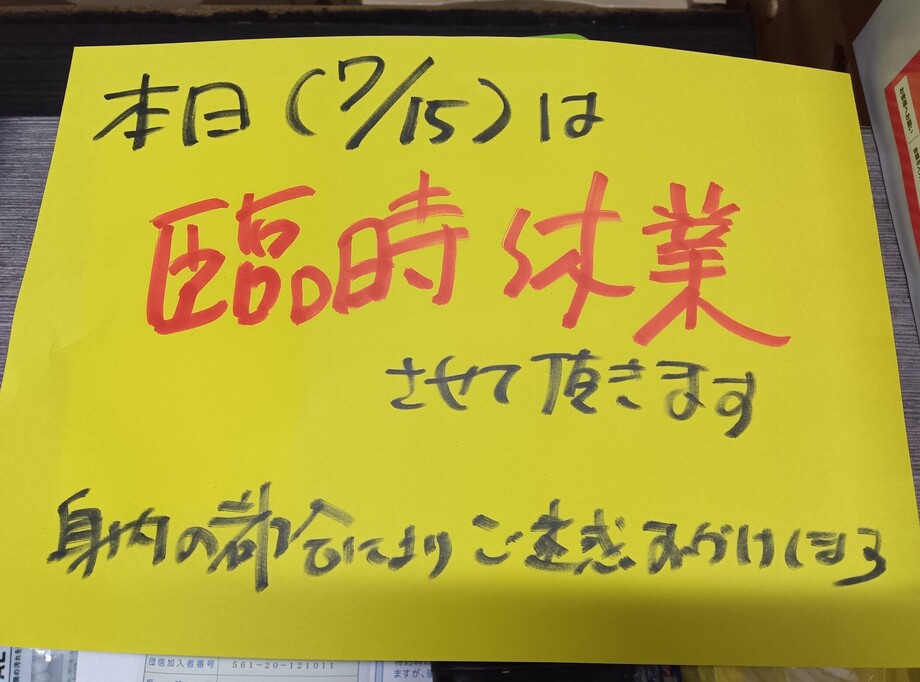 本日(7/15)は
臨時休業
させて頂きます
身内の都合によりご迷惑おかけします
団信加入者番号 561-20-121011